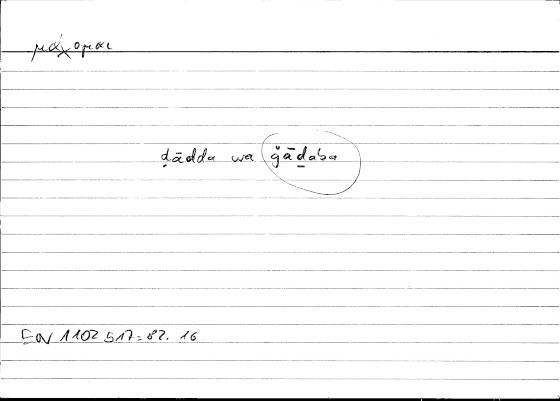 μάχομαι
ḍādda wa ǧāḏaba
EN 1102 517 = 82. 16